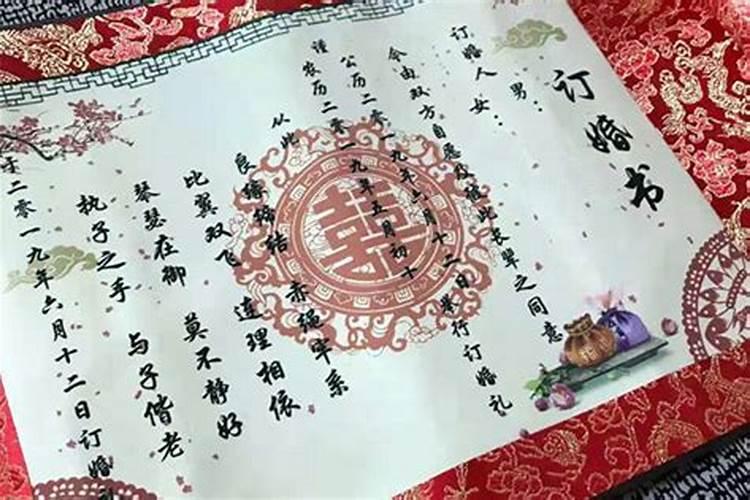 订婚书
男：
订婚人女：
今由双方自愿及彼此长辈之同意
谨
公历二零一九年六月十二日举行订婚礼
农历二零一九年五月初十
从此
良缘缔结 赤绳牢系
比翼双飞 连理相依
琴瑟在御 莫不静好
执子之手 与子偕老
于二零一九年六月十二日订婚